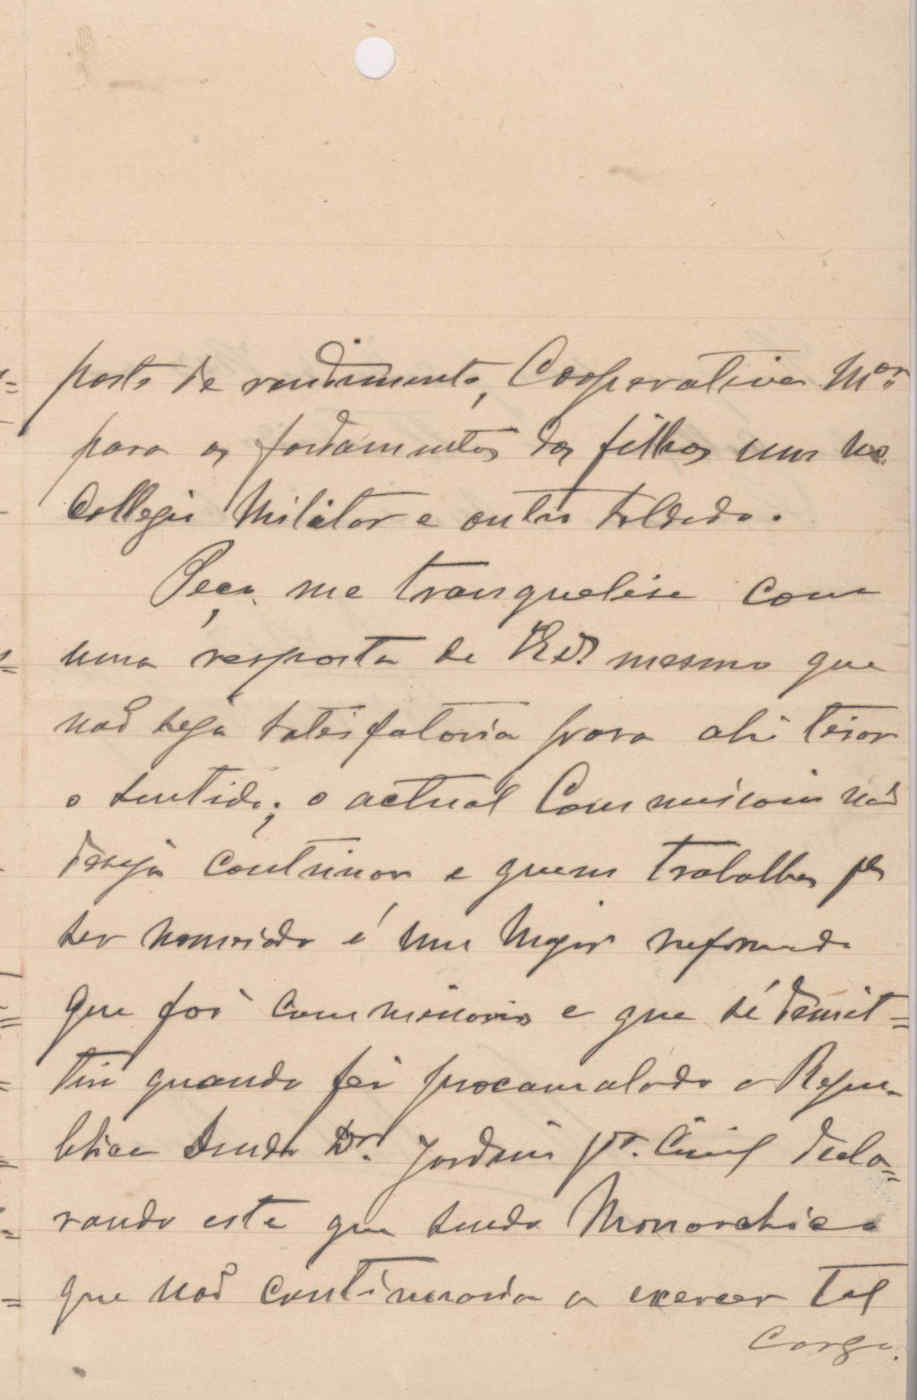 posto de rendimento, Cooperativa Mar
para os fardamentos dos filhos um no
Collegio Militar e outro soldado.
Peço me tranquelise com
uma resposta de mesmo que
não seja satisfatoria para ahi tirar
o sentido; o actual Commissario não
deseja continuar e quem trabalha pa
ser nomeado é um Major reformado
que foi commissario e que se demit=
tiu quando foi procamalado a Repu-
blica sendo Dr. Jordão Civil decla=
rando este que sendo Monarchico
que não continuaria a exercer tal
cargo.